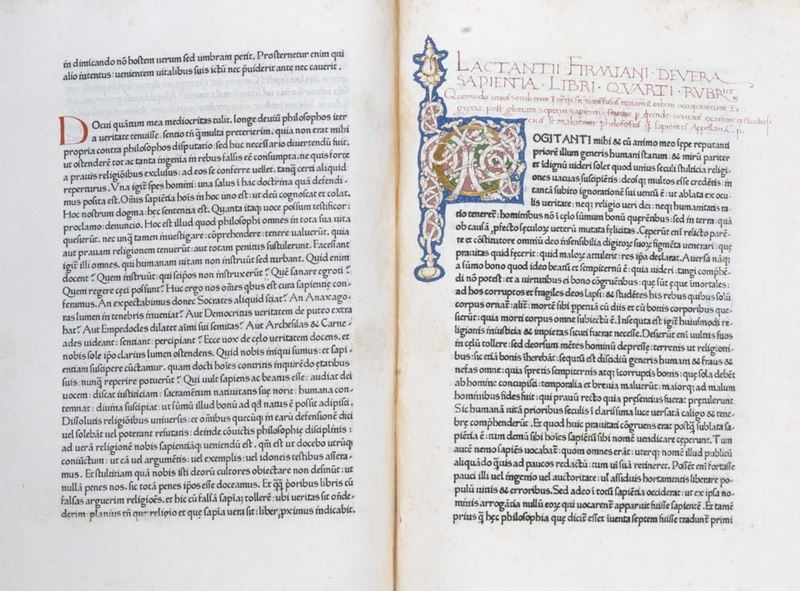 in dimicando nō hostem uerum sed umbram petit. Prosternetur enim qui
alio intentus: uenientem uitalibus suis ictū nec p̄uiderit ante nec cauerit.
DOcui quātum mea mediocritas tulit. longe deuiū philosophos iter
a ueritate tenuisse. sentio tn̄ q̄ multa preterierim. quia non erat mihi
propria contra philosophos disputatio: sed huc necessario diuertendū fuit.
ut ostenderē tot ac tanta ingenia in rebus falsis eē consumpta. ne quis forte
a prauis religiōibus exclusus: ad eos se conferre uellet. tanq̄ certi aliquid
reperturus. Vna igit̄ spes homini: una salus ī hac doctrina quā defendi-
mus posita est. Oīnis sapiētia hoīs in hoc uno est: ut deū cognoscat et colat.
Hoc nostrum dogma: hęc sententia est. Quanta itaq̨ uoce possum testificor:
proclamo: denuncio. Hoc est illud quod philosophi omnes in tota sua uita
quęsierūt. nec unq̄ tamen inuestigare: cōprehendere: tenere ualuerūt. quia
aut prauam religionem tenuerūt: aut totam penitus sustulerunt. Facessant
igit̄ illi omnes. qui humanam uitam non instruūt sed turbant. Quid enim
docent? Quem instruūt: qui seipos non instruxerūt? Quē sanare ęgroti?
Quem regere cęci possunt? Huc ergo nos oīnes quibus est cura sapientię con-
feramus. An expectabimus donec Socrates aliquid sciat? An Anaxago-
ras lumen in tenebris inueniat? Aut Democritus ueritatem de puteo extra
hat? Aut Empedocles dilatet aīmi sui semitas? Aut Archesilas & Carne
ades uideant: sentiant: percipiant? Ecce uox de cęlo ueritatem docens. et
nobis sole ip̄o clarius lumen ostendens. Quid nobis iniqui sumus: et sapi-
entiam suscipere cūctamur. quam docti hoīes contritis inquirēdo ętatibus
suis: nunq̄ reperire potuerūt? Qui uult sapiens ac beatus esse: audiat dei
uocem: discat iusticiam: sacramētum natiuitatis suę norit: humana con-
temnat: diuina suscipiat: ut sūmū illud bonū ad qd̄ natus ē possit adipisci.
Dissolutis religiōibus uniuersis: et oīnibus quęcūq̨ in earū defensionē dici
uel solebāt uel poterant refutatis: deinde conuictis philosophię disciplinis:
ad uerā religionē nobis sapientiāq̨ ueniendū est. qm̄ est ut docebo utrūq̨
coniūctum: ut eā uel argumētis: uel exemplis: uel idoneis testibus assera-
mus. Et stultitiam quā nobis isti deorū cultores obiectare non desinūt: ut
nullā penes nos. sic totā penes ip̄os esse doceamus. Et q̄q̄ prioribus libris cū
falsas arguerim religiōes. et hic cū falsā sapiā tollerē: ubi ueritas sit onde-
derim. planius tn̄ quę religio et quę sapiā uera sit: liber proximus indicabit.
LACTANTII FIRMIANI DE VERA
SAPIENTIA LIBRI QVARTI RVBRICe
COGITANTI mihi & cū animo meo sępe reputanti
priorē illum generis humani statum: & mirū pariter
et idignū uideri solet quod unius seculi stultitia religi-
ones uarias suscipiētis: deosq̨ multos esse credētis: in
tantā subito ignorationē sui uentū ē: ut ablata ex ocu-
lis ueritate: neq̨ religio ueri dei: neq̨ humanitatis ra-
tio teneret̄: hominibus nō ī cęlo sūmum bonū quęrentibus: sed in terra: quā
ob causā profecto sęculoꝝ ueterū mutata felicitas. Ceperūt enī relicto parē-
te et cōstitutore omniū deo insensibilia digitoꝝ suoꝝ figmēta uenerari: quę
prauitas quid fecerit: quid maloꝝ attulerit: res ip̄a declarat. Auersi nāq̨
a sūmo bono quod ideo beatū et sempiternū ē: quia uideri: tangi: comphē-
di nō potest: et a uirtutibus ei bono cōgruētibus: quę sūt ęque īmortales:
ad hos corruptos et fragiles deos lapsi: & studētes his rebus quibus solū
corpus ornat̄: alit̄: mortē sibi ppetuā cū diis et cū bonis corporibus quę-
sierūt: quia morti corpus omne subiectū ē. Insequta est igit̄ huiusmodi re-
ligionis iniusticia & impietas sicuti fuerat necesse. Desierūt enī uultus suos
in cęlū tollere: sed deorsum mētes hominū depressę: terrenis ut religioni-
bus: sic etiā bonis īherebāt: sequtū est disidiū generis humani & fraus &
nefas omne: quia spretis sempiternis atq̨ īcorruptis bonis: quę sola debēt
ab homine concupisci: temporalia et breuia maluerūt: maiorq̨ ad malum
hominibus fides fuit: qui prauū recto quia pręsentius fuerat pretulerunt.
Sic humanā uitā prioribus seculis ī clarissima luce uersatā caligo & tene-
brę compr̄henderūt. Et quod huic prauitati cōgruens erat postq̄ sublata sa-
piētia ē: tum demū sibi hoīes sapiētiū sibi nomē uendicare ceperunt. Tum
autē nemo sapiēs uocabat̄: quom omnes erāt: utęrq̨ nomē illud publicū
aliquādo quāuis ad paucos redactū: tum uī suā retineret. Possēt enī fortasse
pauci illi uel ingenio uel auctoritate: uel assiduis hortamentis liberare po-
pulū uitiis & erroribus. Sed adeo ī totū sapiētia occiderat: ut ex ip̄sa no-
minis arrogātia nullū eoꝝ qui uocarent̄ apparuit fuisse sapientē. Et tamē
prius q̄ hęc philosophia quę dicit̄ esset īuenta septem fuisse tradunt̄ primi